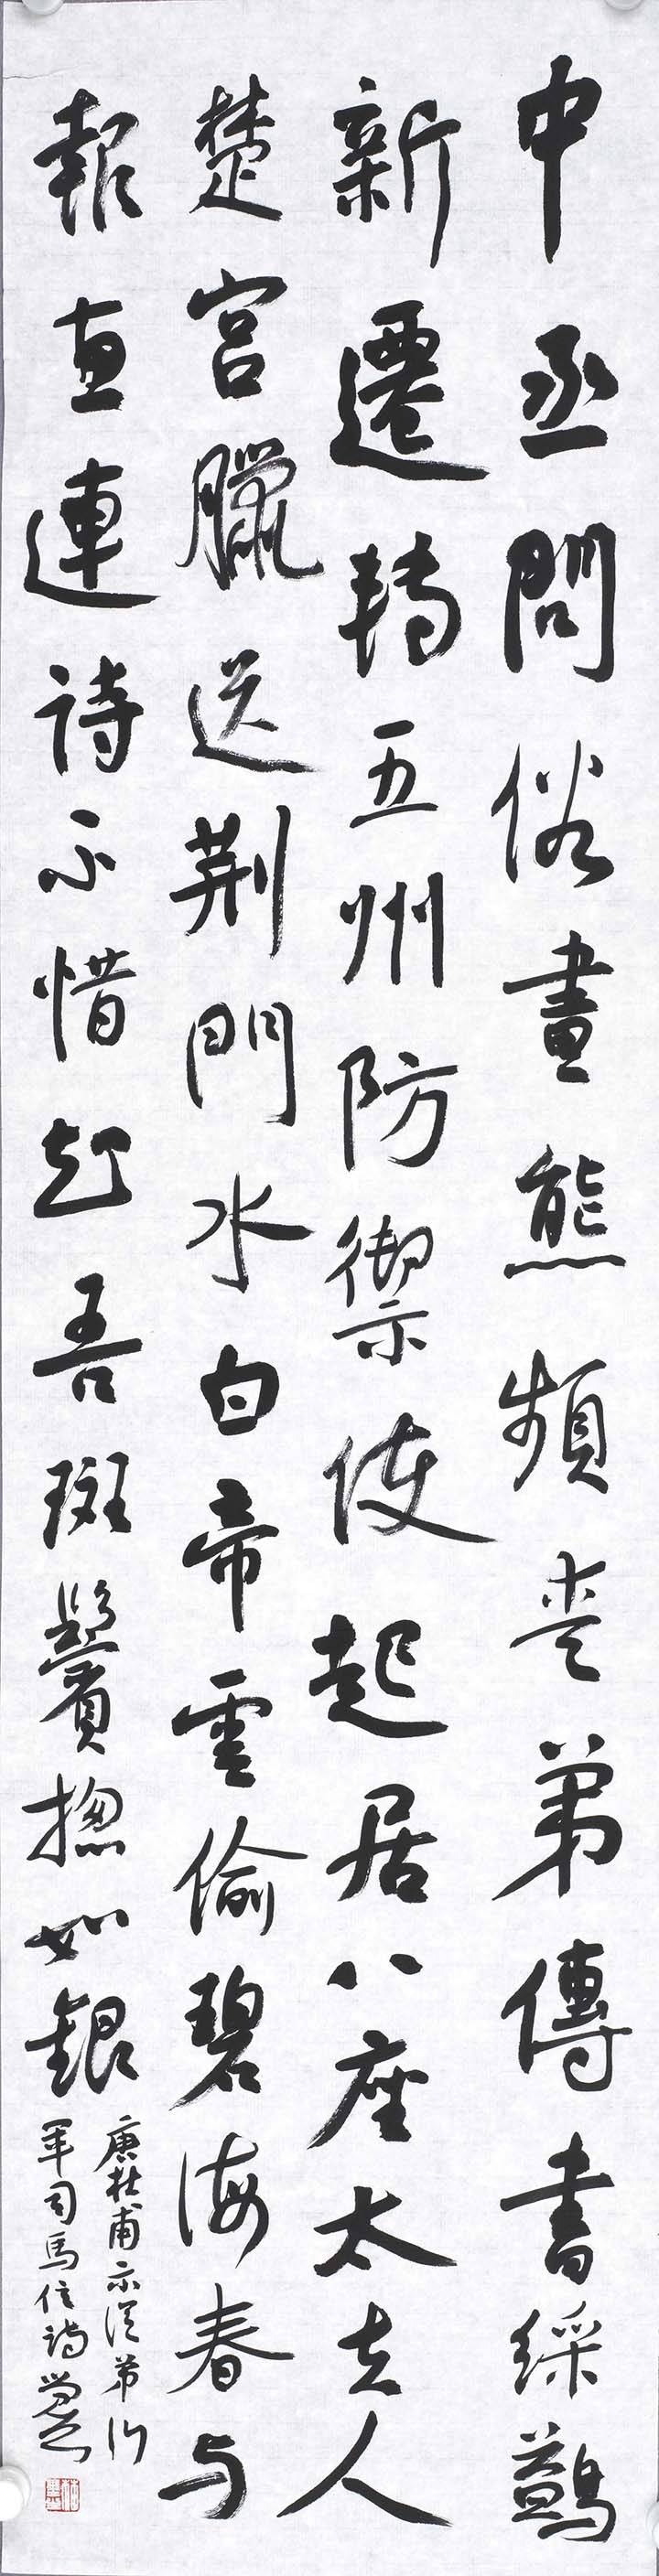 中丞問俗畫熊頻愛弟傳書綵鷁
新遷轉五州防禦使起居八座太夫人
楚宮臘送荊門水白帝雲偷碧海春与
報惠連詩不惜知吾斑鬢揔如銀
唐杜甫示從弟行
軍司馬位詩